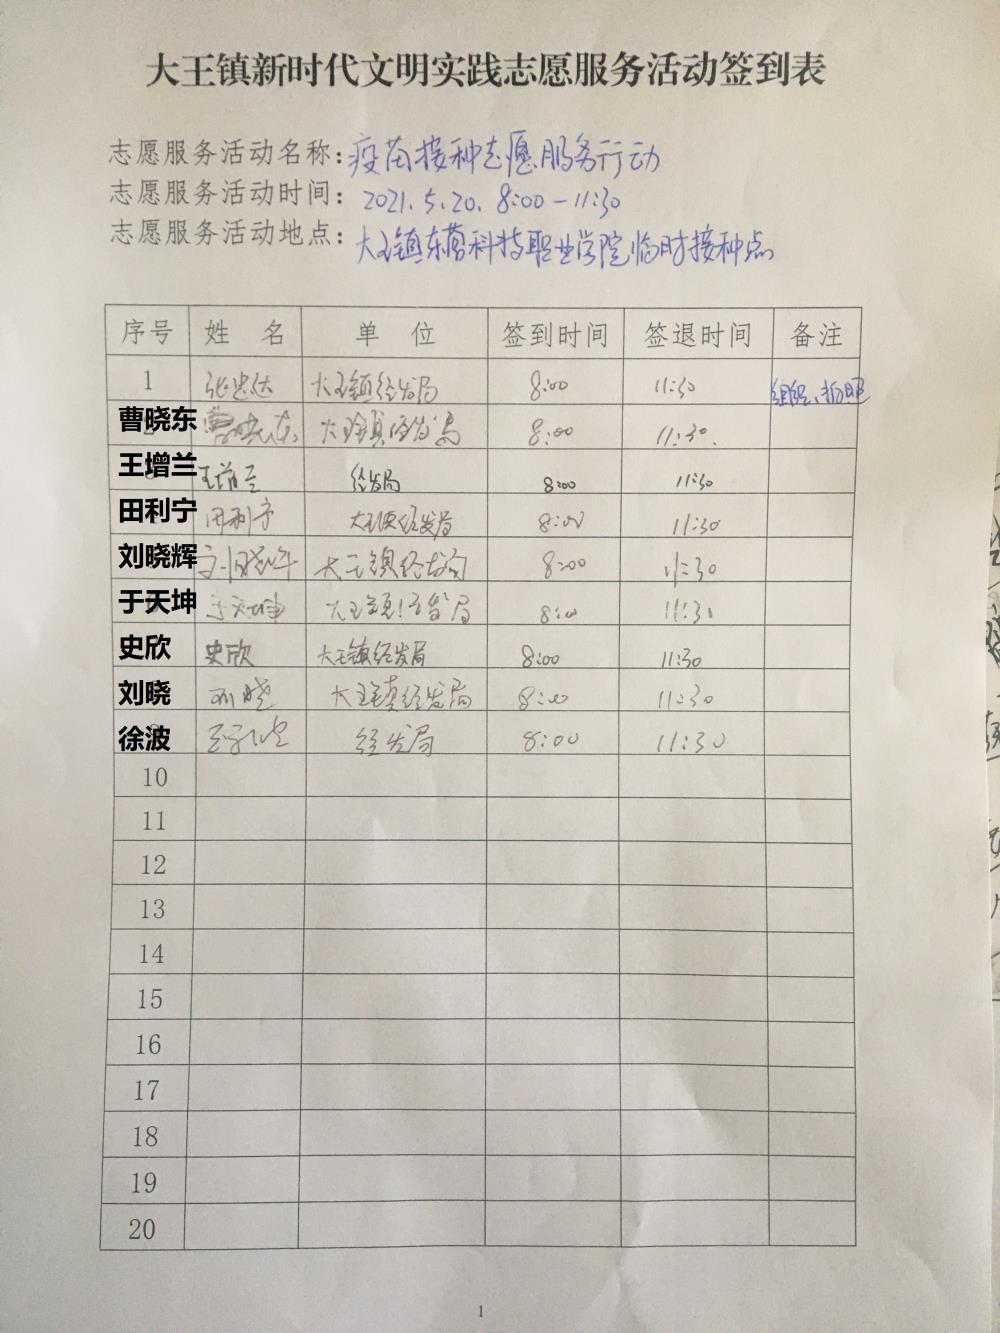 大王镇新时代文明实践志愿服务活动签到表
志愿服务活动名称：疫苗接种志愿服务行动
志愿服务活动时间：2021.5.20. 8:00-11:30
志愿服务活动地点：大王镇东营科技职业学院临时接种点
序号 姓 名 单 位 签到时间 签退时间 备注
1 张忠达 大王镇经发局 8:00 11:30 组织、拍照
曹晓东 曹晓东 大王镇经发局 8:00 11:30.
王增兰 王增兰 经发局 8:00 11:30
田利宁 田利宁 大王镇经发局 8:00 11:30
刘晓辉 刘晓辉 大王镇经发局 8:00 11:30
于天坤 于天坤 大王镇经发局 8:00 11:30
史欣 史欣 大王镇经发局 8:00 11:30
刘晓 刘晓 大王镇经发局 8:00 11:30
徐波 经发局 8:00 11:30
10
11
12
13
14
15
16
17
18
19
20
1